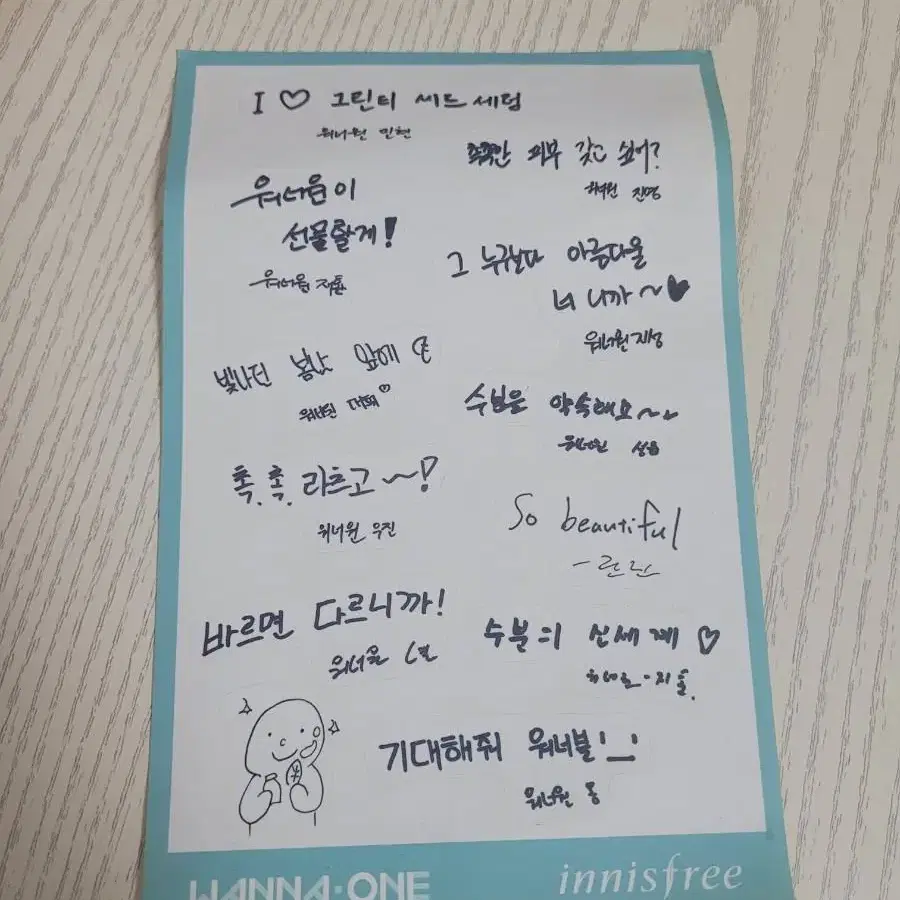 I ♡ 그린티 씨드 세럼
워너원 민현
촉촉한 피부 갖고 싶어?
워너원 진영
워너원이
선물할게!
워너원 지훈
그 누구보다 아름다울
너 니까~♥
워너원 재성
빛나던 봄날 앞에
워너원 대휘♡
수분은 약속해요~
워너원 성운
촉.촉. 라츠고~!
워너원 우진
So beautiful
바르면 다르니까!
워너원
수분의 신세계 ♡
기대해줘 워너블 '_'
워너원
WANNA·ONE
innisfree